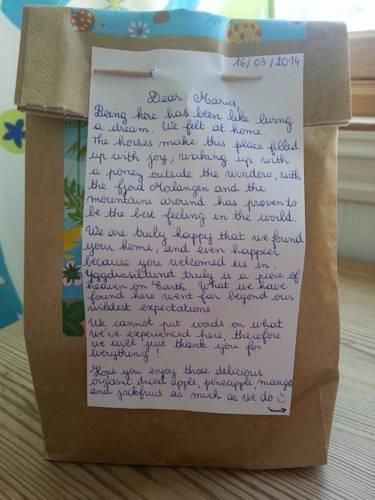 16/03/2014
Dear Maria,
Being here has been like living
a dream. We felt at home.
The horses make this place filled
up with joy, waking up with
a poney outside the window, with
the fjord Malangen and the
mountains around has proven to
be the best feeling in the world.
We are truly happy that we found
your home, and even happier
because you welcomed us in.
Yggdrasiltunet truly is a piece of
heaven on Earth. What we have
found here went far beyond our
wildest expectations
We cannot put words on what
we've experienced here, therefore
we will just thank you for
everything!
Hope you enjoy those delicious
organic dried apple, pineapple, mango
and jackfruit as much as we do